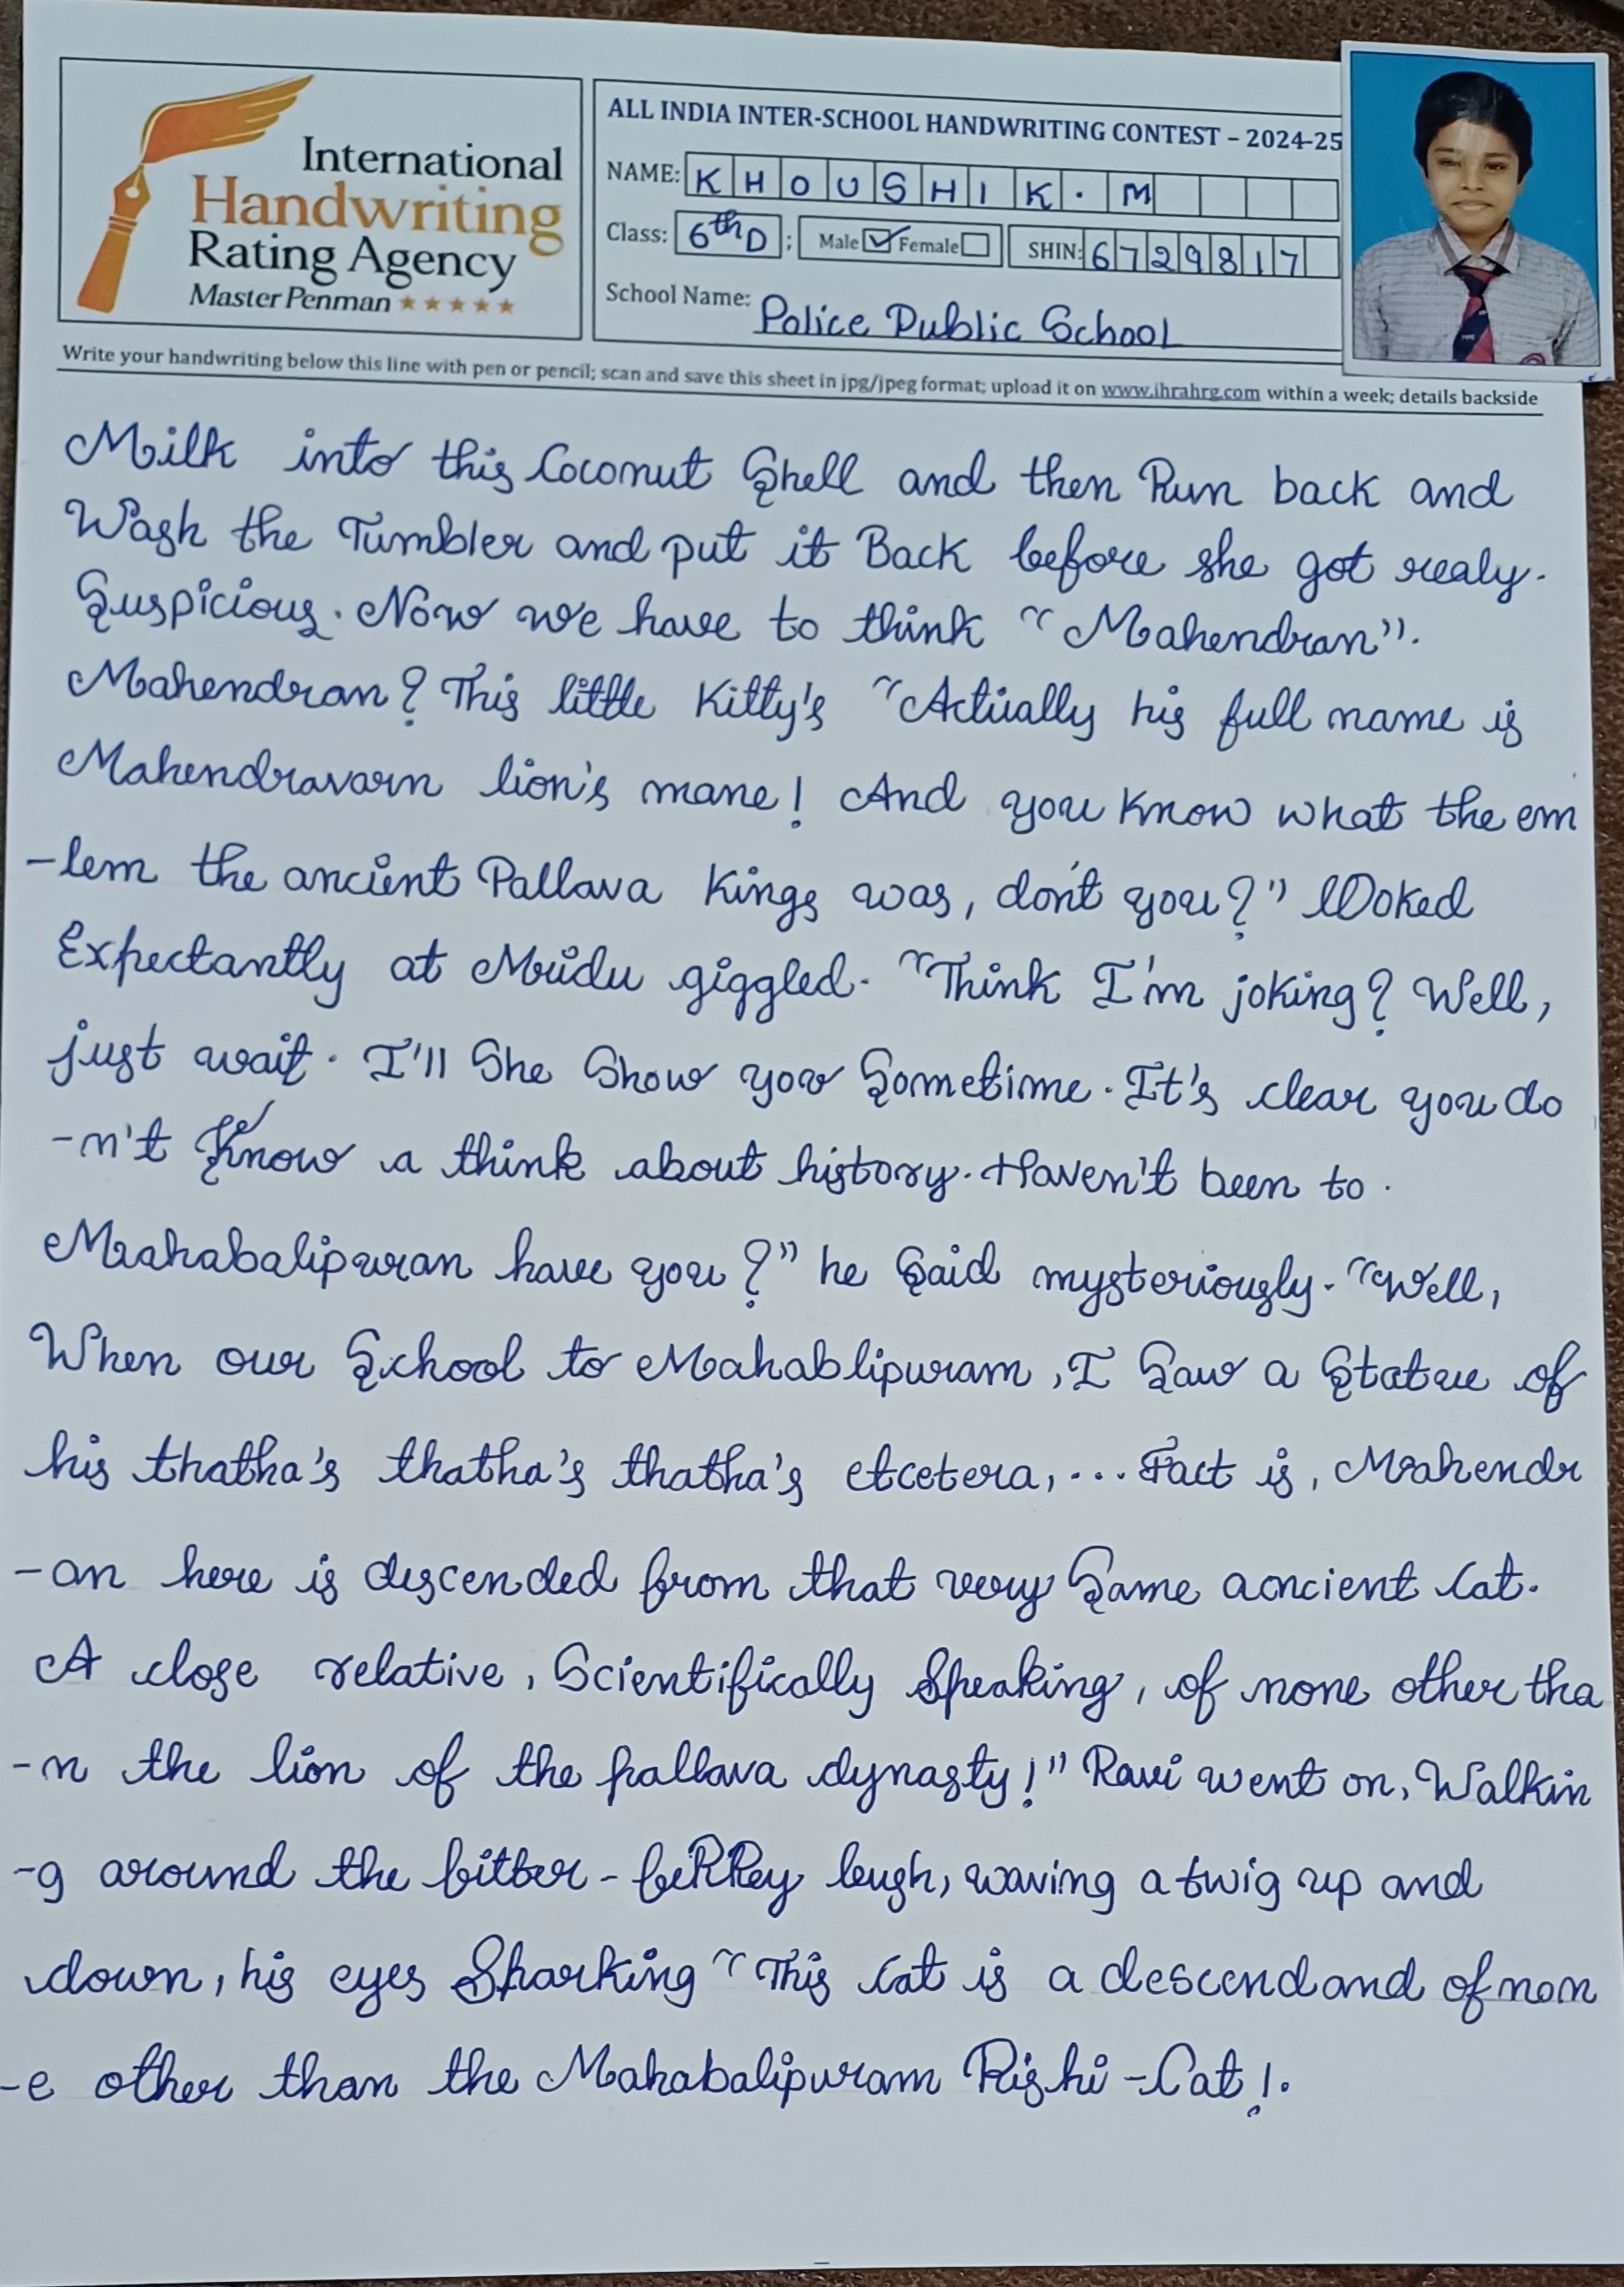 International
Handwriting
Rating Agency
Master Penman
ALL INDIA INTER-SCHOOL HANDWRITING CONTEST – 2024-25
NAME: KHOUSHIK. M
Class: 6th D ; Male Female SHIN: 6729817
School Name: Police Public School
Write your handwriting below this line with pen or pencil; scan and save this sheet in jpg/jpeg format; upload it on www.ihrahrg.com within a week; details backside
Milk into this Coconut Shell and then Run back and
Wash the Tumbler and put it Back before she got realy.
Suspicious. Now we have to think "Mahendran".
Mahendran? This little Kitty's "Actually his full name is
Mahendravarn lion's mane! And you Know what the em
-lem the ancient Pallava Kings was, don't you?" lOoked
Expectantly at Mridu giggled. "Think I'm joking? Well,
just wait. I'll She Show you Sometime. It's clear you do
-n't Know a think about history. Haven't been to.
Mahabalipuran have you?" he Said mysteriously. "Well,
When our School to Mahablipuram, I Saw a Statue of
his thatha's thatha's thatha's etcetera,... Fact is, Mahendr
-an here is descended from that very Same aoncient Cat.
A close relative, Scientifically Speaking, of none other tha
-n the lion of the pallava dynasty!" Ravi went on, Walkin
-g around the bitter-beRRey laugh, waving a twig up and
down, his eyes Sparking "This Cat is a descendand of non
-e other than the Mahabalipuram Rishi-Cat!.